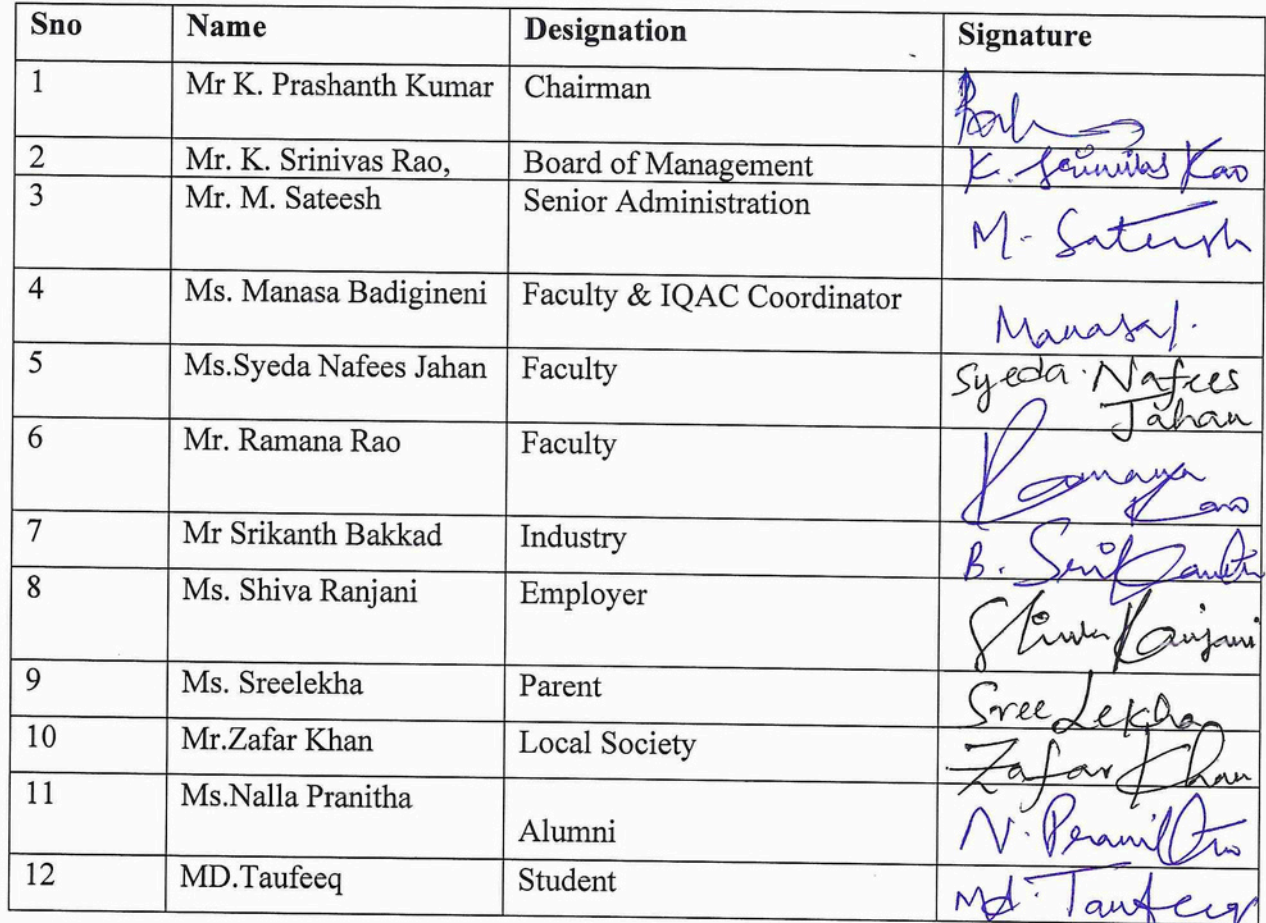 Sno Name Designation Signature
1 Mr K. Prashanth Kumar Chairman
2 Mr. K. Srinivas Rao, Board of Management K. Srinivas Rao
3 Mr. M. Sateesh Senior Administration M. Sateesh
4 Ms. Manasa Badigineni Faculty & IQAC Coordinator Manasa
5 Ms.Syeda Nafees Jahan Faculty Syeda Nafees
Jahan
6 Mr. Ramana Rao Faculty Ramana
Rao
7 Mr Srikanth Bakkad Industry B. Srikanth
8 Ms. Shiva Ranjani Employer Shiva Ranjani
9 Ms. Sreelekha Parent Sree Lekha
10 Mr.Zafar Khan Local Society Zafar Khan
11 Ms.Nalla Pranitha
Alumni N.
12 MD.Taufeeq Student Md. Taufeeq